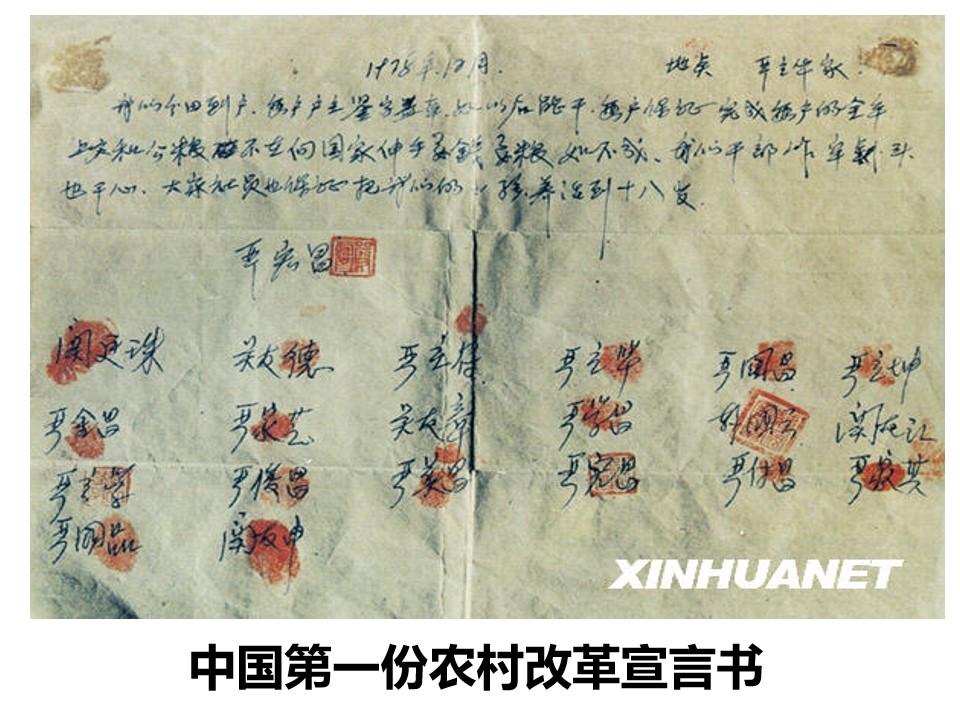 1978年12月. 地点 严立华家.
我们分田到户，每户户主签字盖章，如以后能干，每户保证完成每户的全年
上交和公粮，不在向国家伸手要钱要粮，如不成，我们干部作牢刹头
也干心，大家社员也保证把我们的小孩养活到十八岁.
严宏昌
关廷珠 关友德 严立符 严立华 严国昌 严立坤
严金昌 严家芝 关友章 严学昌 韩国云 关友江
严立学 严俊昌 严美昌 严宏昌 严付昌 严家其
严国品 关友申
XINHUANET
中国第一份农村改革宣言书